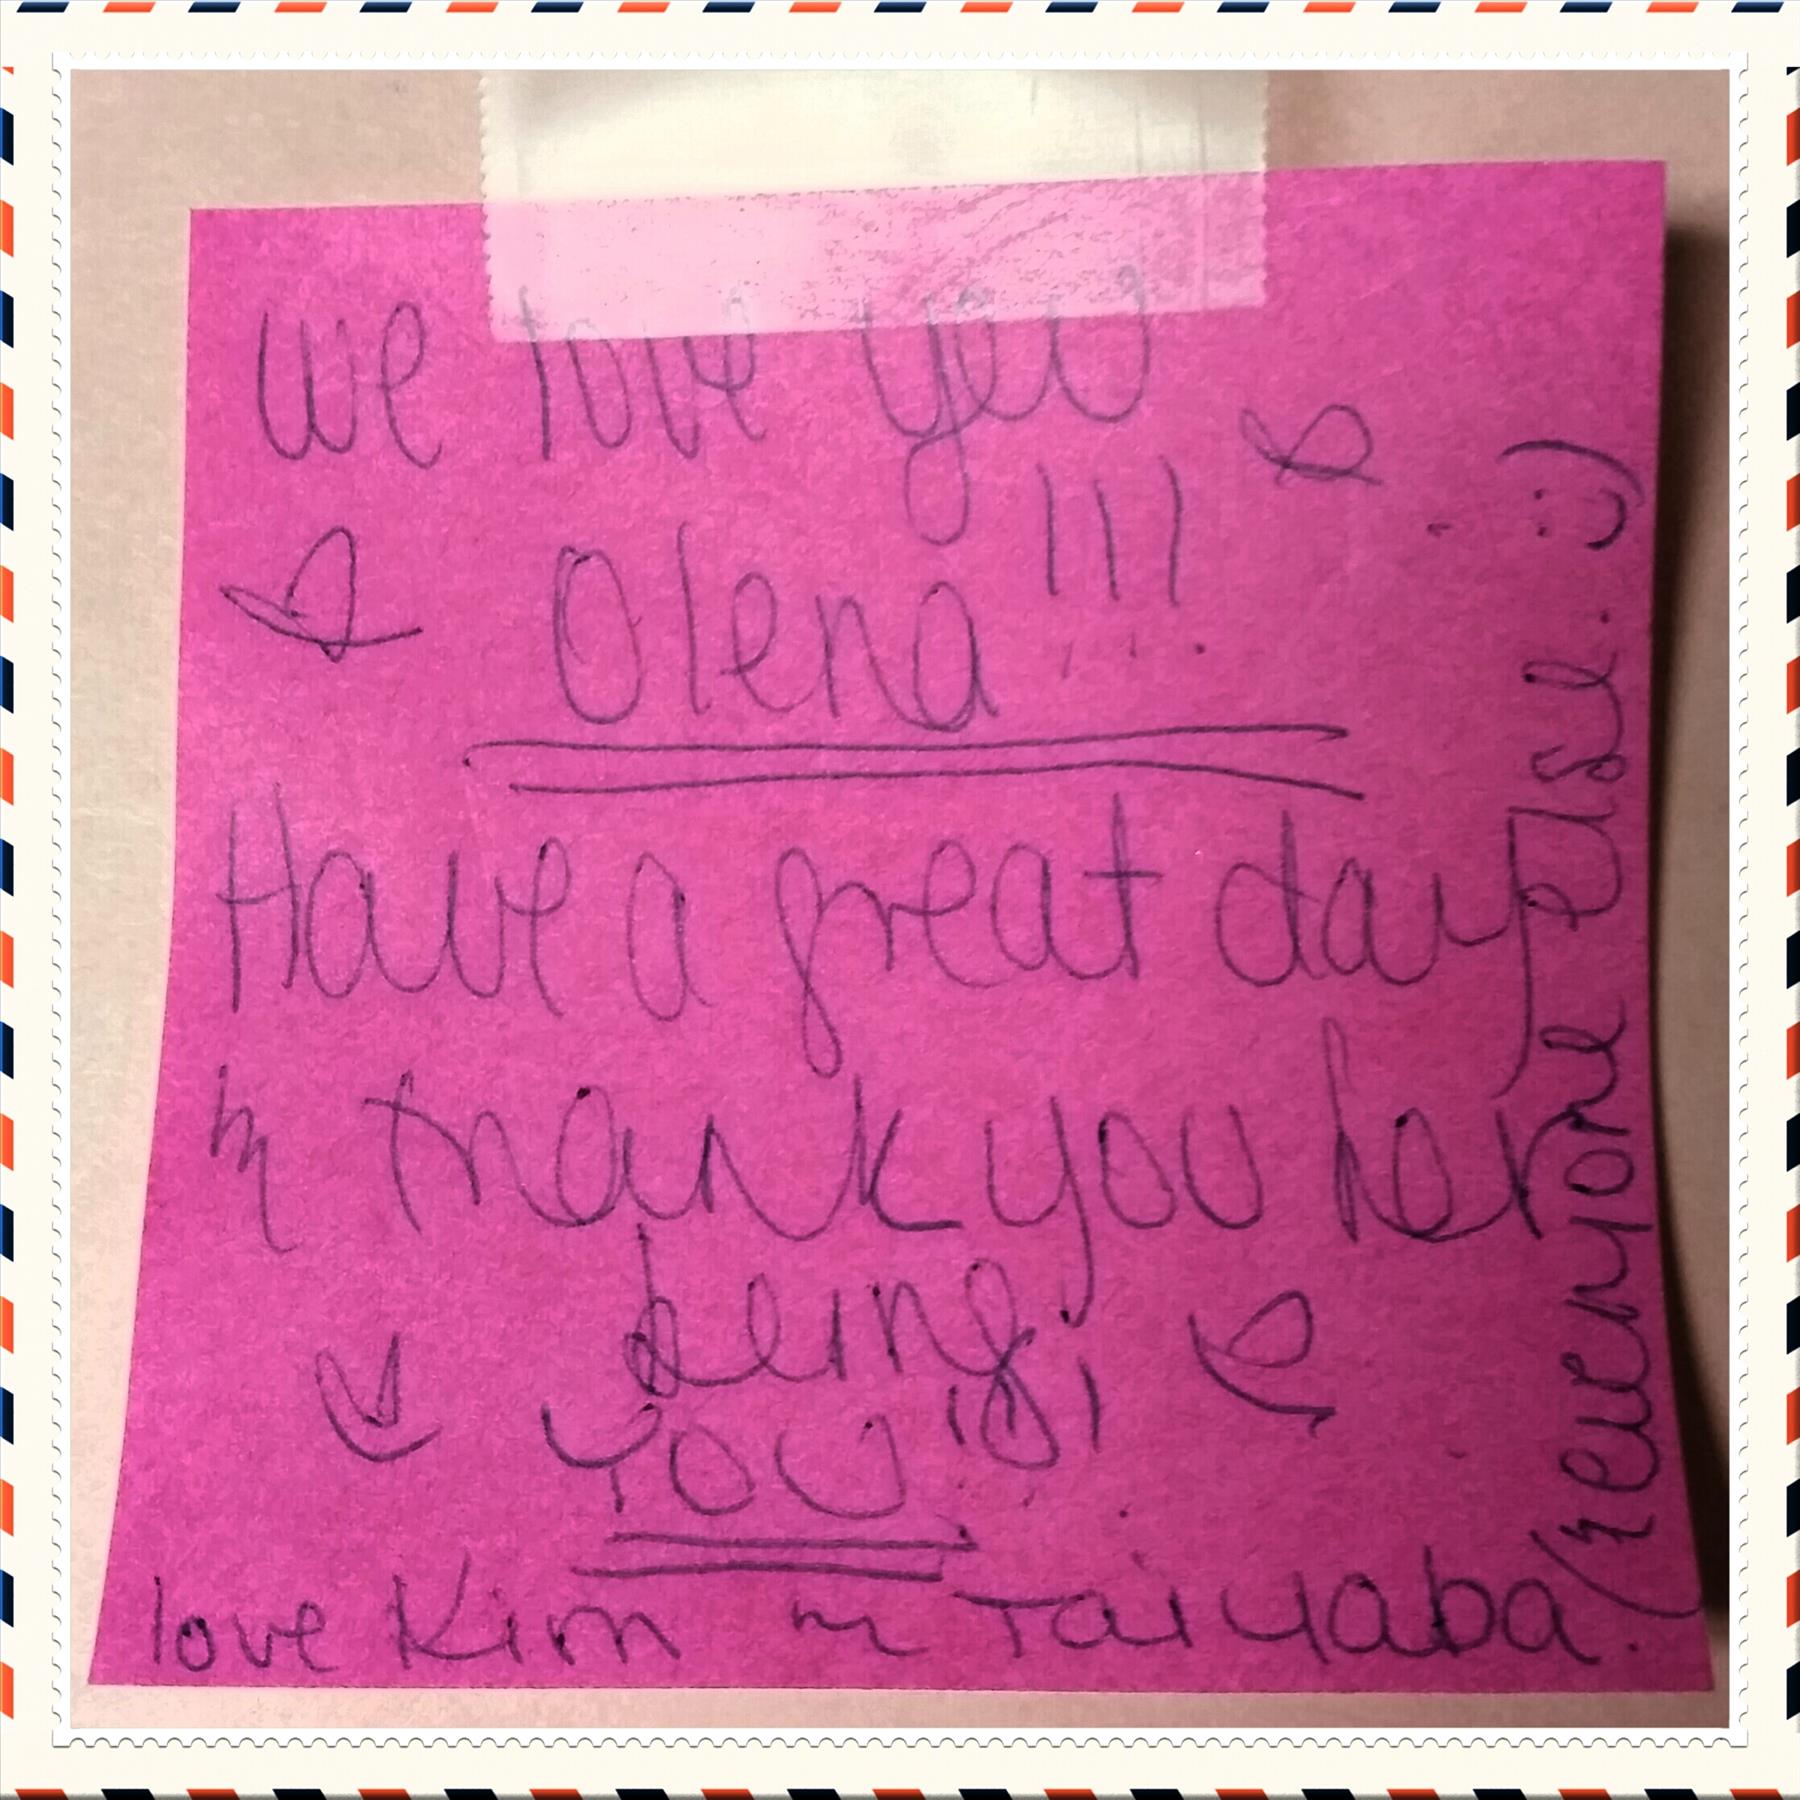 we love you
Olena!!!
Have a great day
n thank you for
being
YOU!!!
love Kim n Taiyaba.
(n everyone else. :)